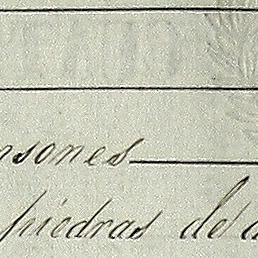 nsones
piedras de a